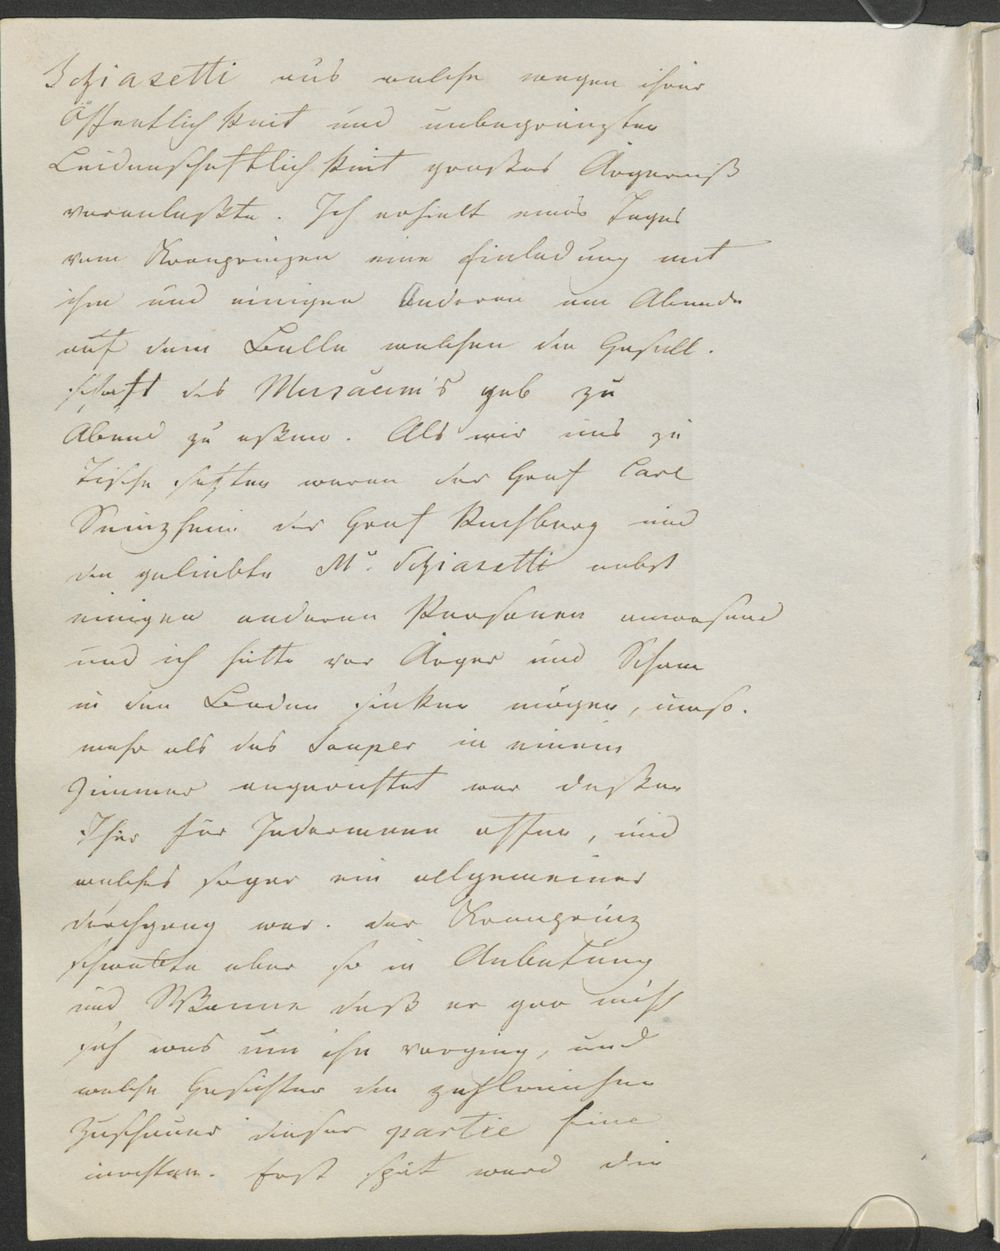 Schiasetti aus welche wegen ihrer
Öffentlichkeit und unbegränzten
Leidenschaftlichkeit großes Ärgerniß
veranlaßte. Ich erhielt eines Tages
vom Kronprinzen eine Einladung mit
ihm und einigen Anderen am Abende
auf dem Balle welchen die Gesell-
schaft des Musäum's gab zu
Abend zu eßen. Als wir uns zu
Tische setzten waren der Graf Carl
Seinzheim der Graf Rechberg und
die geliebte Mlle Schiasetti nebst
einigen anderen Personen anwesend
und ich hätte vor Ärger und Scham
in den Boden sinken mögen, umso-
mehr als das Souper in einem
Zimmer angerichtet war deßen
Thür für Jedermann offen, und
welches sogar ein allgemeiner
Durchgang war. Der Kronprinz
schwebte aber so in Anbetung
und Wonne daß er gar nicht
sah was um ihn vorging, und
welche Gesichter die zahlreichen
Zuschauer dieser partie fine
machten. Erst spät ward die